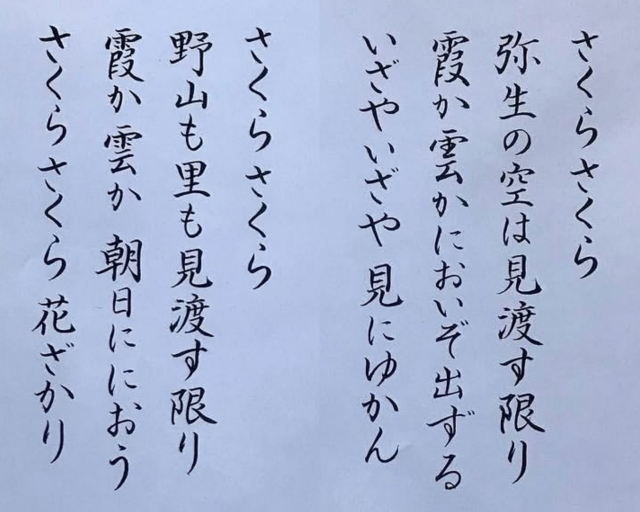 さくらさくら
弥生の空は見渡す限り
霞か雲かにおいぞ出ずる
いざやいざや 見にゆかん
さくらさくら
野山も里も見渡す限り
霞か雲か 朝日ににおう
さくらさくら 花ざかり